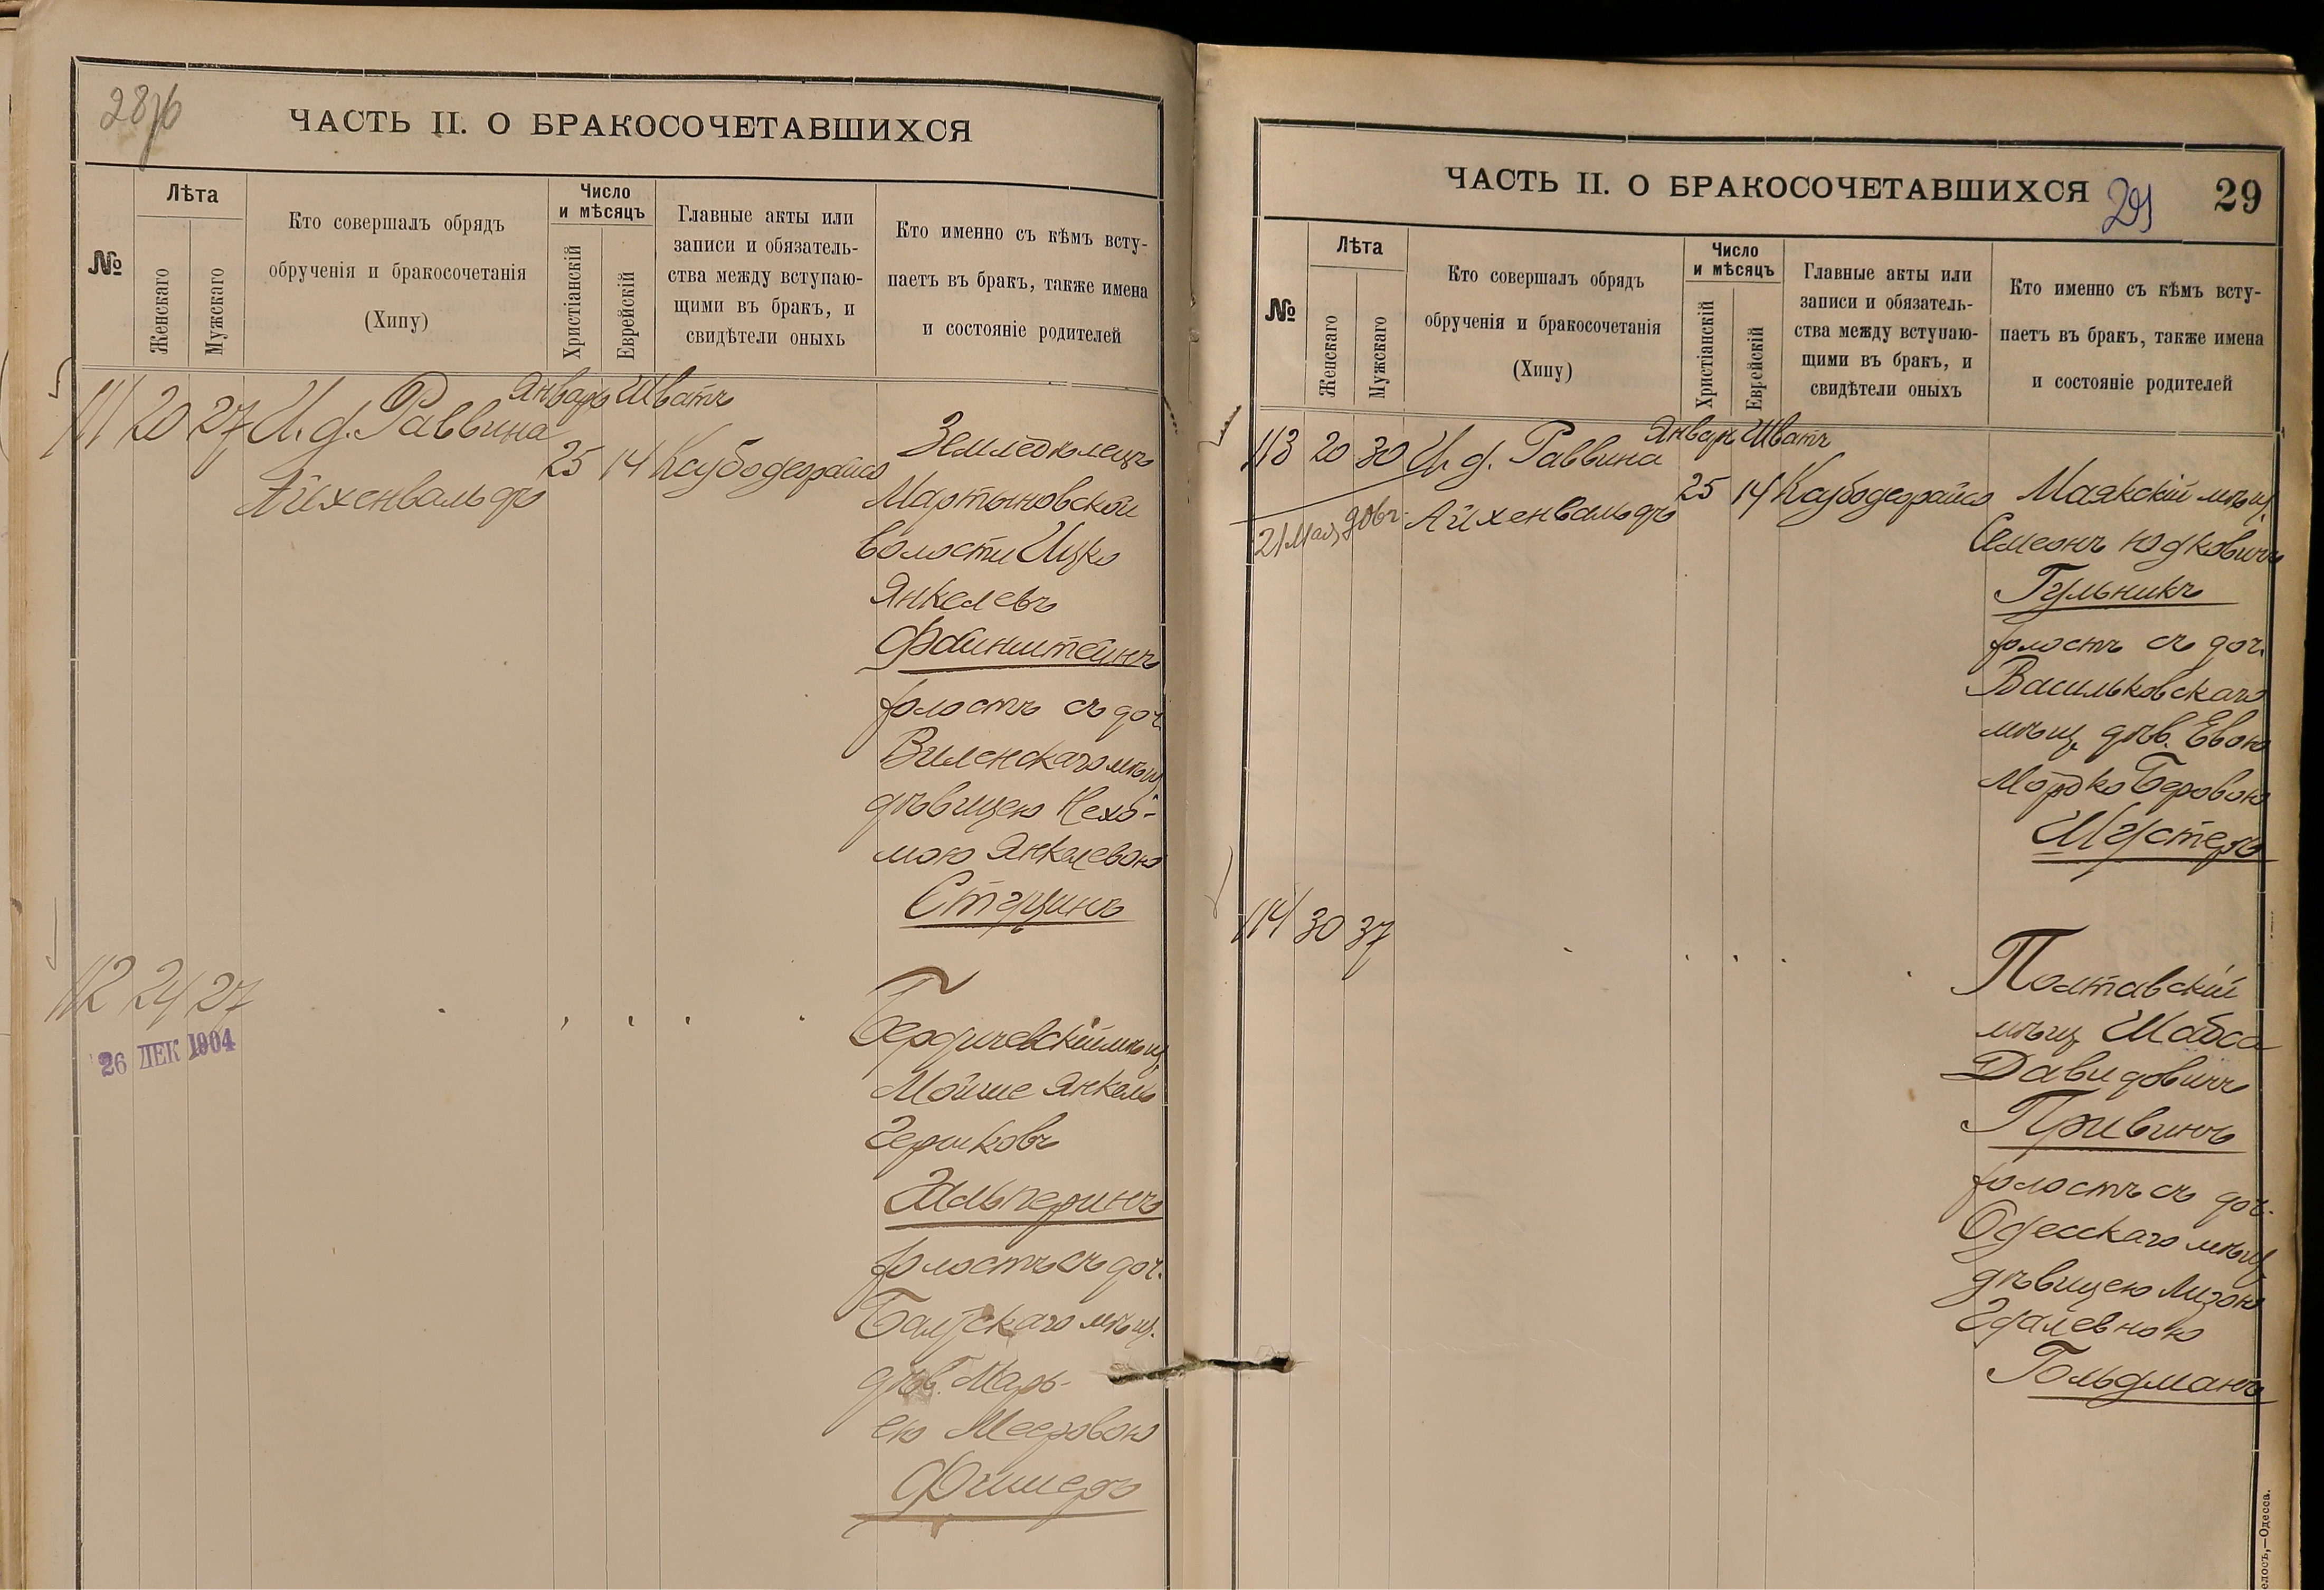 28об
ЧАСТЬ II. О БРАКОСОЧЕТАВШИХСЯ
№
Лѣта
Женскаго
Мужскаго
Кто совершалъ обрядъ
обрученія и бракосочетанія
(Хипу)
Число
и мѣсяцъ
Христіанскій
Еврейскій
Главные акты или
записи и обязатель-
ства между вступаю-
щими въ бракъ, и
свидѣтели оныхъ
Кто именно съ кѣмъ всту-
паетъ въ бракъ, также имена
и состояніе родителей
111 20 27 И. д. Раввина
Айхенвальдъ
Январь Шватъ
25 14 Ксубодерайсо
Земледѣлецъ
Мартыновской
волости Ицко
Янкелевъ
Файнштейнъ
холостъ съ доч.
Виленскаго мѣщ.
дѣвицею Нехо-
мою Янкелевою
112 24 27
26 ДЕК 1904
Бердичевскій мѣщ.
Мойше Янкель
Гершковъ
Гальперинъ
холостъ съ доч.
Балтскаго мѣщ.
дѣв. Марь-
ею Мееровою
Фишеръ
ЧАСТЬ II. О БРАКОСОЧЕТАВШИХСЯ
29
29
№
Лѣта
Женскаго
Мужскаго
Кто совершалъ обрядъ
обрученія и бракосочетанія
(Хипу)
Число
и мѣсяцъ
Христіанскій
Еврейскій
Главные акты или
записи и обязатель-
ства между вступаю-
щими въ бракъ, и
свидѣтели оныхъ
Кто именно съ кѣмъ всту-
паетъ въ бракъ, также имена
и состояніе родителей
113 20 30 И. д. Раввина
Айхенвальдъ
21 Мая
Январь Шватъ
25 14 Ксубодерайсо
Маякскій мѣщ.
Симеонъ Юдковичъ
Гульникъ
холостъ съ доч.
Васильковскаго
мѣщ. дѣв. Евою
Мордко Беровою
Шустеръ
114 30 37
Полтавскій
мѣщ. Шабса
Давидовичъ
Привинъ
холостъ съ доч.
Одесскаго мѣщ.
дѣвицею Лизою
Гдалевною
Гольдманъ
елосъ,—Одесса.